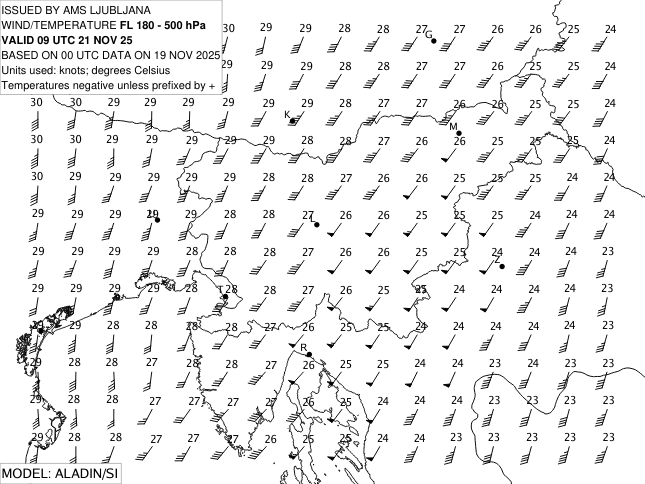 ISSUED BY AMS LJUBLJANA
WIND/TEMPERATURE FL 180 - 500 hPa
VALID 09 UTC 21 NOV 25
BASED ON 00 UTC DATA ON 19 NOV 2025
Units used: knots; degrees Celsius
Temperatures negative unless prefixed by +
30 29 29 28 28 27 26 26 25 25 24
29 29 28 28 27 27 26 25 25 24
30 30 29 29 29 29 29 28 27 27 26 26 25 25 24
30 30 29 29 29 29 28 28 27 26 26 25 25 25 24
30 29 29 29 29 28 28 27 26 26 25 25 25 24 24
29 29 29 29 29 28 28 27 26 26 25 25 25 24 24 24
29 29 29 28 28 28 27 26 26 25 25 24 24 24 23
29 29 29 28 28 28 27 26 26 25 25 24 24 24 23
29 29 28 28 28 28 27 26 25 25 24 24 24 24 23 23
29 28 28 27 28 28 27 26 25 25 24 24 23 24 23 23
29 28 28 27 27 27 27 26 25 25 24 24 23 23 23 23
29 28 28 27 27 27 26 25 25 24 24 23 23 23 23 23
G
K
M
L
Z
T
R
MODEL: ALADIN/SI